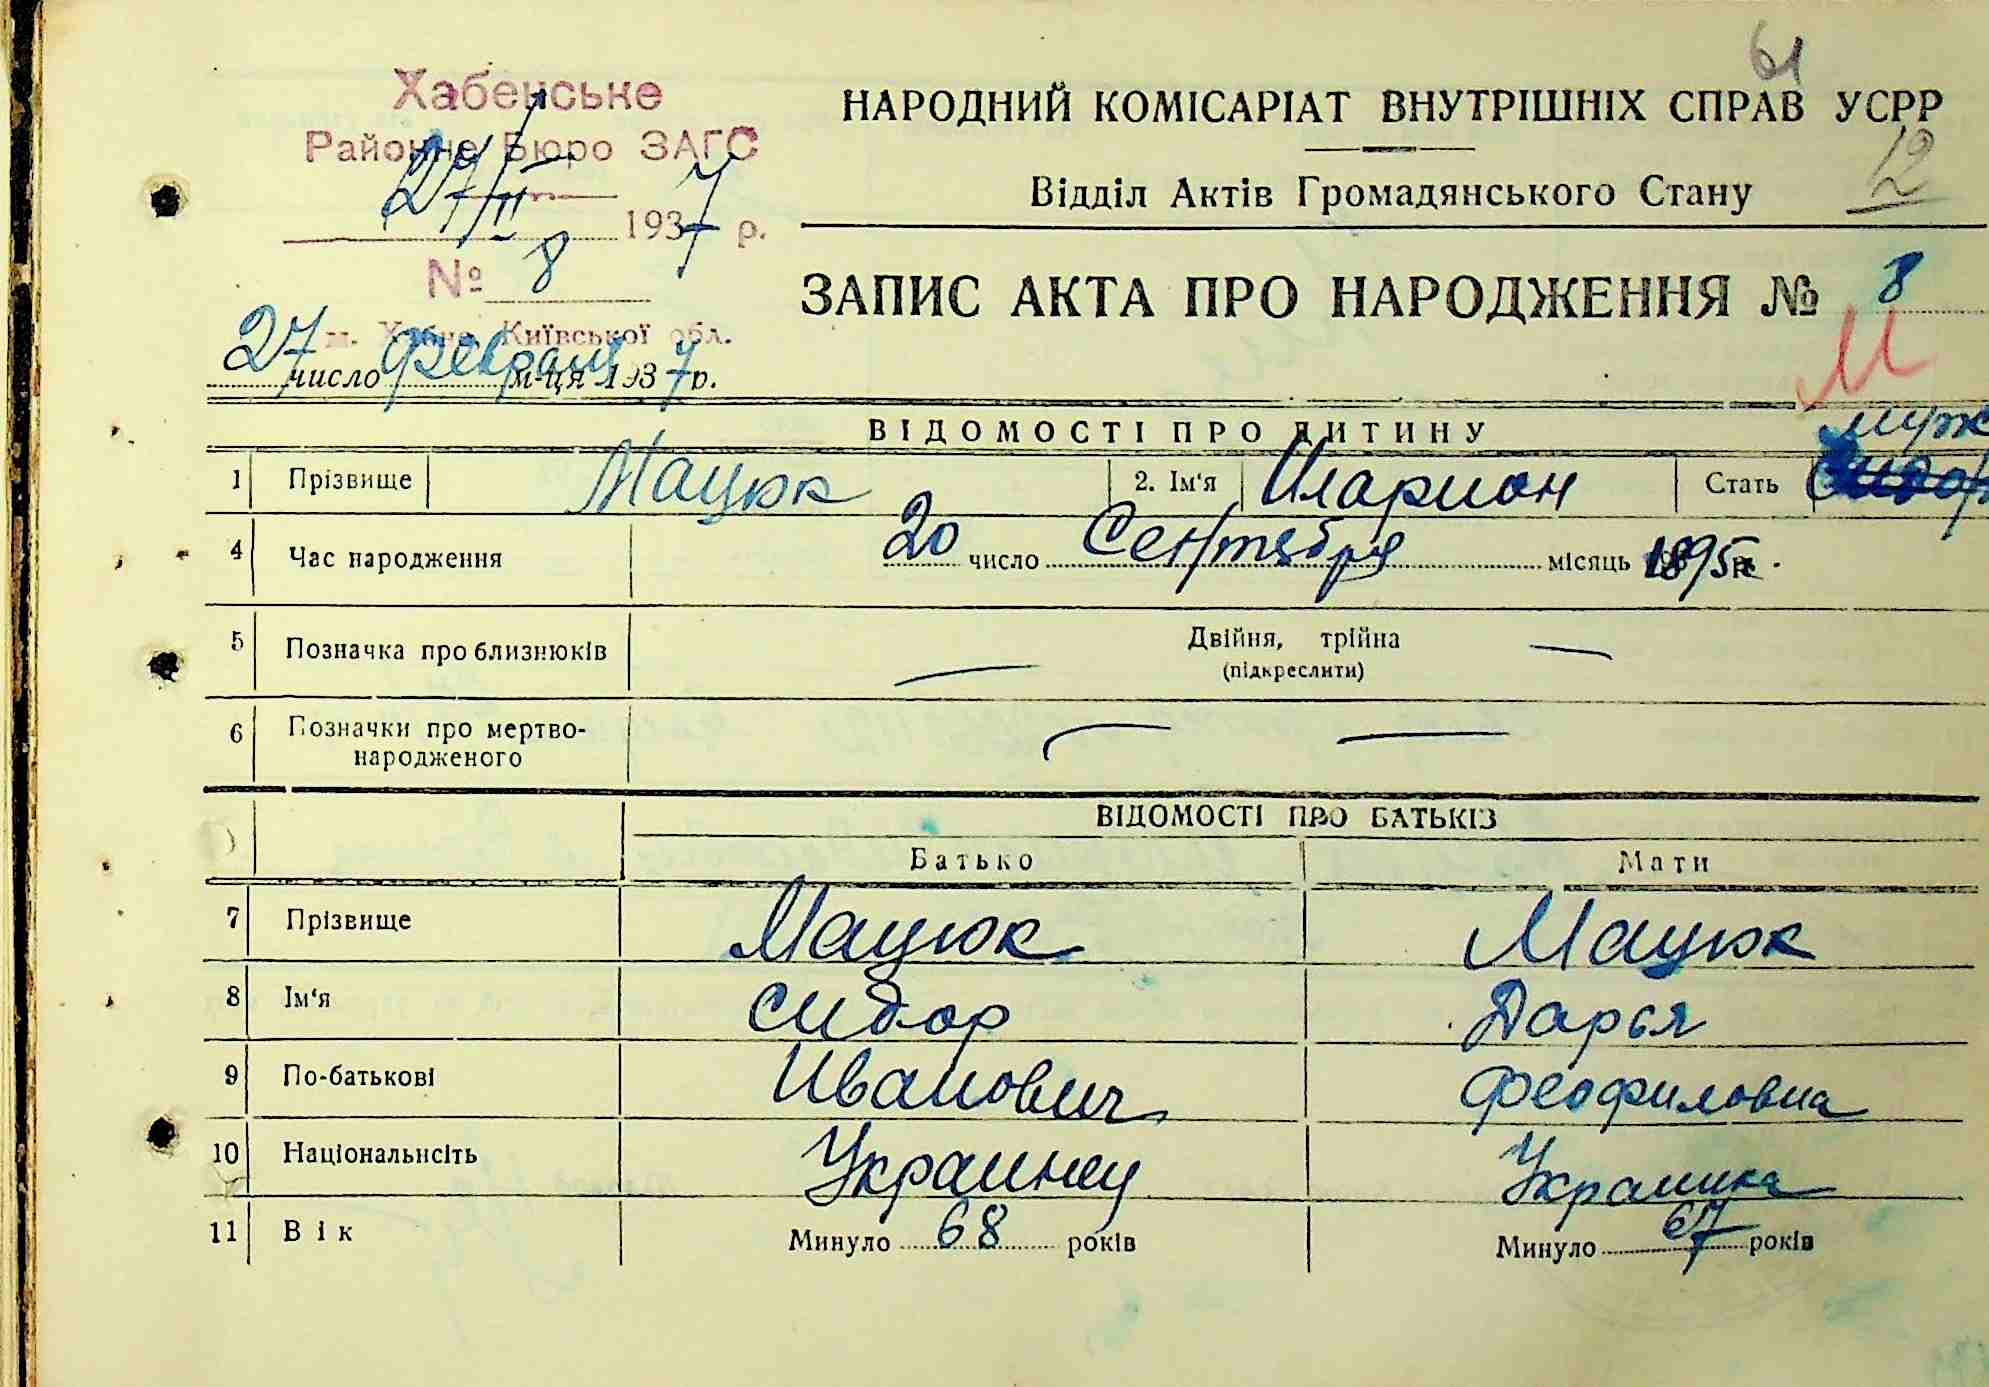 61
Хабенське
НАРОДНИЙ КОМІСАРІАТ ВНУТРІШНІХ СПРАВ УСРР
Районне Бюро ЗАГС
12
Відділ Актів Громадянського Стану
27/II 1937 р.
№ 8
ЗАПИС АКТА ПРО НАРОДЖЕННЯ № 8
м. Хабне, Київської обл.
М
27 число Февраля м-ця 1937 р.
ВІДОМОСТІ ПРО ДИТИНУ
муж
1 Прізвище Мацюк 2. Ім'я Иларион Стать
4 Час народження 20 число Сентября місяць 1895 р.
5 Позначка про близнюків — Двійня, трійна —
(підкреслити)
6 Позначки про мертво-
народженого — —
ВІДОМОСТІ ПРО БАТЬКІВ
Батько Мати
7 Прізвище Мацюк Мацюк
8 Ім'я Сидор Дарья
9 По-батькові Иванович Феофиловна
10 Національнсіть Украинец Украинка
11 Вік Минуло 68 років Минуло 67 років